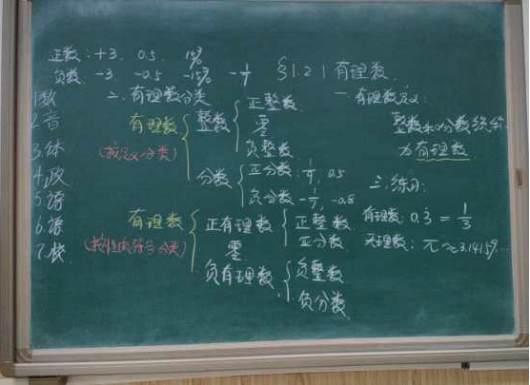 正数：+3. 0.5. 15%
负数：-3 -0.5 -15%
§1.2.1 有理数
1.数
2.音
3.体
4.政
5.
6.
7.
一. 有理数定义：
整数和分数统称
为有理数
二. 有理数分类
有理数
(按定义分类)
整数
正整数
零
负整数
分数
正分数： 0.5
负分数
有理数
(按性质符号分类)
正有理数
正整数
正分数
零
负有理数
负整数
负分数
三. 练习：
有理数：0.3̇ = 1/3
无理数：π≈3.14159...